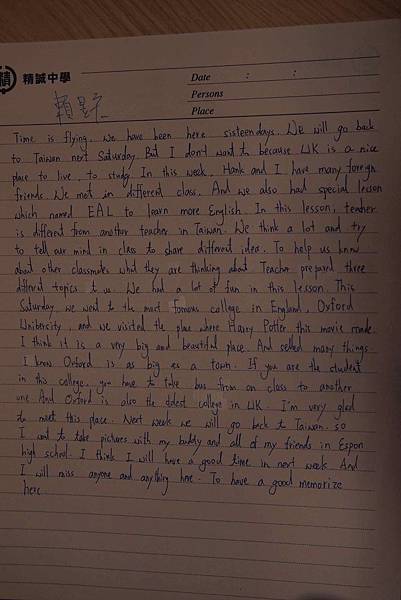 精誠中學
Date : :
Persons
Place
賴
Time is flying. We have been here sisteen days. We will go back
to Taiwan next Saturday. But I don't want to because UK is a nice
place to live, to study. In this week, Hank and I have many foreign
friends. We met in different class. And we also had special lesson
which named EAL to learn more English. In this lesson, teacher
is different from another teacher in Taiwan. We think a lot and try
to tell our mind in class to share different idea. To help us know
about other classmates what they are thinking about. Teacher prepared three
different topics to us. We had a lot of fun in this lesson. This
Saturday we went to the most famous college in England, Oxford
Unibercity, and we visited the place where Harry Potter this movie made.
I think it is a very big and beautiful place. And called many things.
I know Oxford is as big as a town. If you are the student
in this college, you have to take bus from on class to another
one. And Oxford is also the oldest college in UK. I'm very glad
to meet this place. Next week we will go back to Taiwan. so
I want to take pictures with my buddy and all of my friends in Espon
high school. I think I will have a good time in next week. And
I will miss anyone and anything here. To have a good memorize
here.